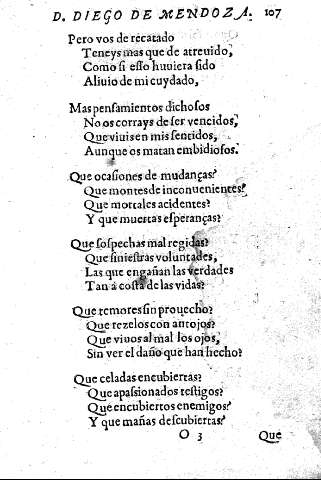 D. DIEGO DE MENDOZA. 107
Pero vos de recatado
Teneys mas que de atreuido,
Como si esso huuiera sido
Aliuio de mi cuydado,
Mas pensamientos dichosos
No os corrays de ser vencidos,
Que viuis en mis sentidos,
Aunque os matan embidiosos.
Que ocasiones de mudanças?
Que montes de inconuenientes?
Que mortales acidentes?
Y que muertas esperanças?
Que sospechas mal regidas?
Que siniestras voluntades,
Las que engañan las verdades
Tan a costa de las vidas?
Que temores sin prouecho?
Que rezelos con antojos?
Que viuos al mal los ojos,
Sin ver el daño que han hecho?
Que celadas encubiertas?
Que apassionados testigos?
Que encubiertos enemigos?
Y que mañas descubiertas?
O 3 Que